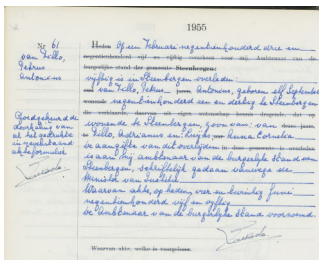 1955
Nr. 61
van Tillo,
Petrus
Antonius
Goedgekeurd de
doorhaling van
al het gedrukte
in nevenstaand
akteformulier
Heden Op een Februari negentienhonderd drie en
Steenbergen:
vijftig is te Steenbergen overleden
van Tillo, Petrus Antonius, geboren elf September
negentienhonderd een en dertig te Steenbergen
wonende te Steenbergen, zoon van van
Tillo, Adrianus en Cornelia
De aangifte van dit overlijden
is aan mij ambtenaar van de burgerlijke stand van
Steenbergen, schriftelijk gedaan vanwege de
Minister van Justitie.
Waarvan akte, op heden, vier en twintig Juni
negentienhonderd vijf en vijftig
De Ambtenaar van de burgerlijke stand voornoemd.
Waarvan akte, welke is voorgelezen.